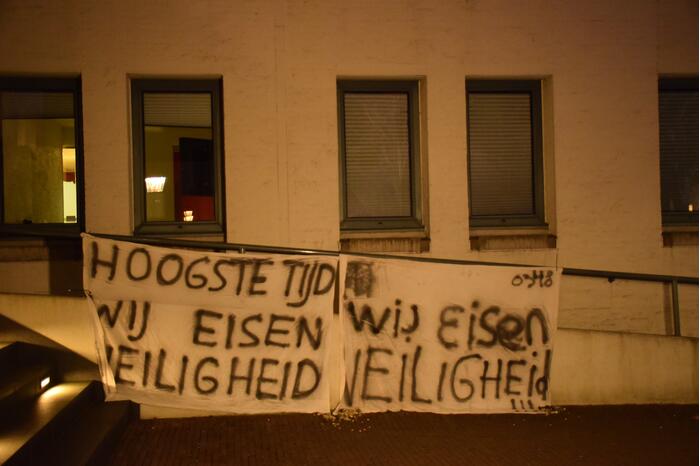 HOOGSTE TIJD
WIJ EISEN
VEILIGHEID
0348
WIJ EISEN
VEILIGHEID!!!